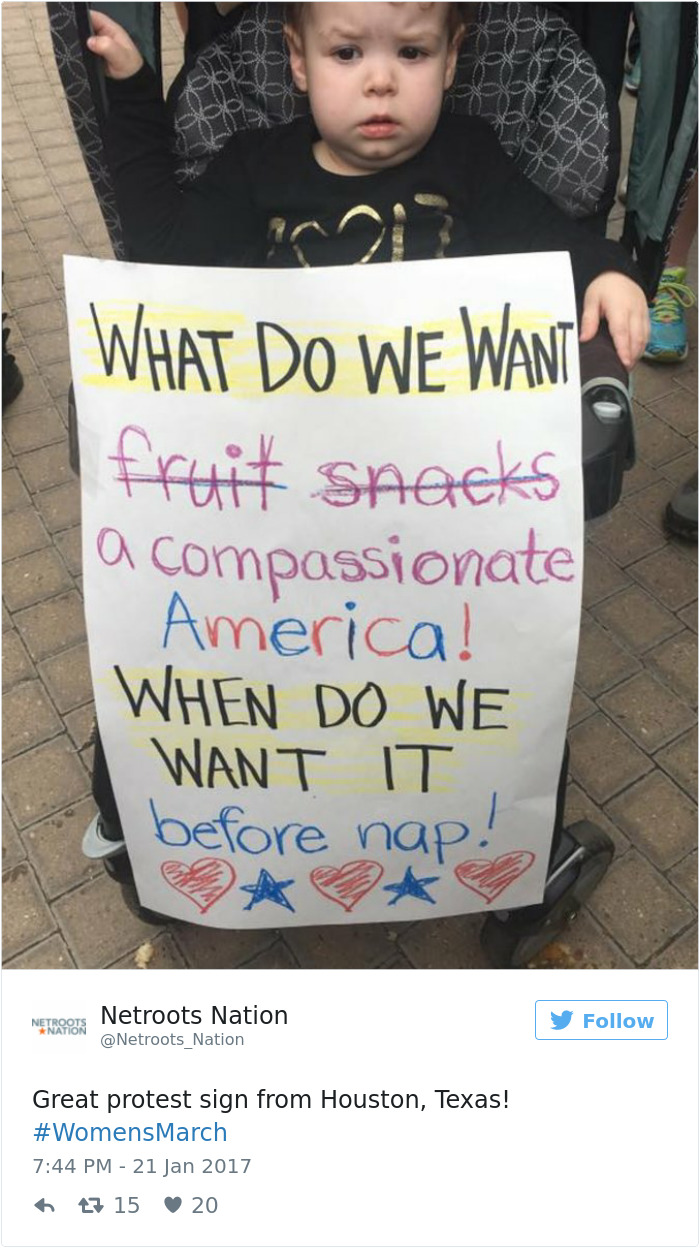 WHAT DO WE WANT
fruit snacks
a compassionate
America!
WHEN DO WE
WANT IT
before nap!
NETROOTS
NATION
Netroots Nation
@Netroots_Nation
Follow
Great protest sign from Houston, Texas!
#WomensMarch
7:44 PM - 21 Jan 2017
15 20